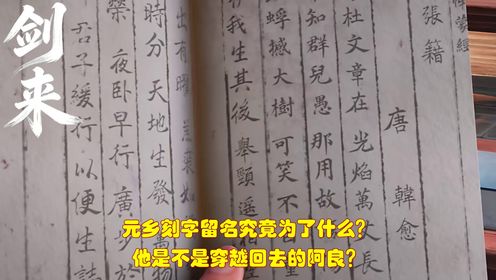 剑来
張籍
唐 韓愈
杜文章在 光焰萬丈長
知群兒愚 那用故
蜉撼大樹 可笑不自
我生其後 舉頸遥相
時分 天地生發 萬物
榮 夜卧早行 廣步於
君子緩行以便生誌
元乡刻字留名究竟为了什么?
他是不是穿越回去的阿良?